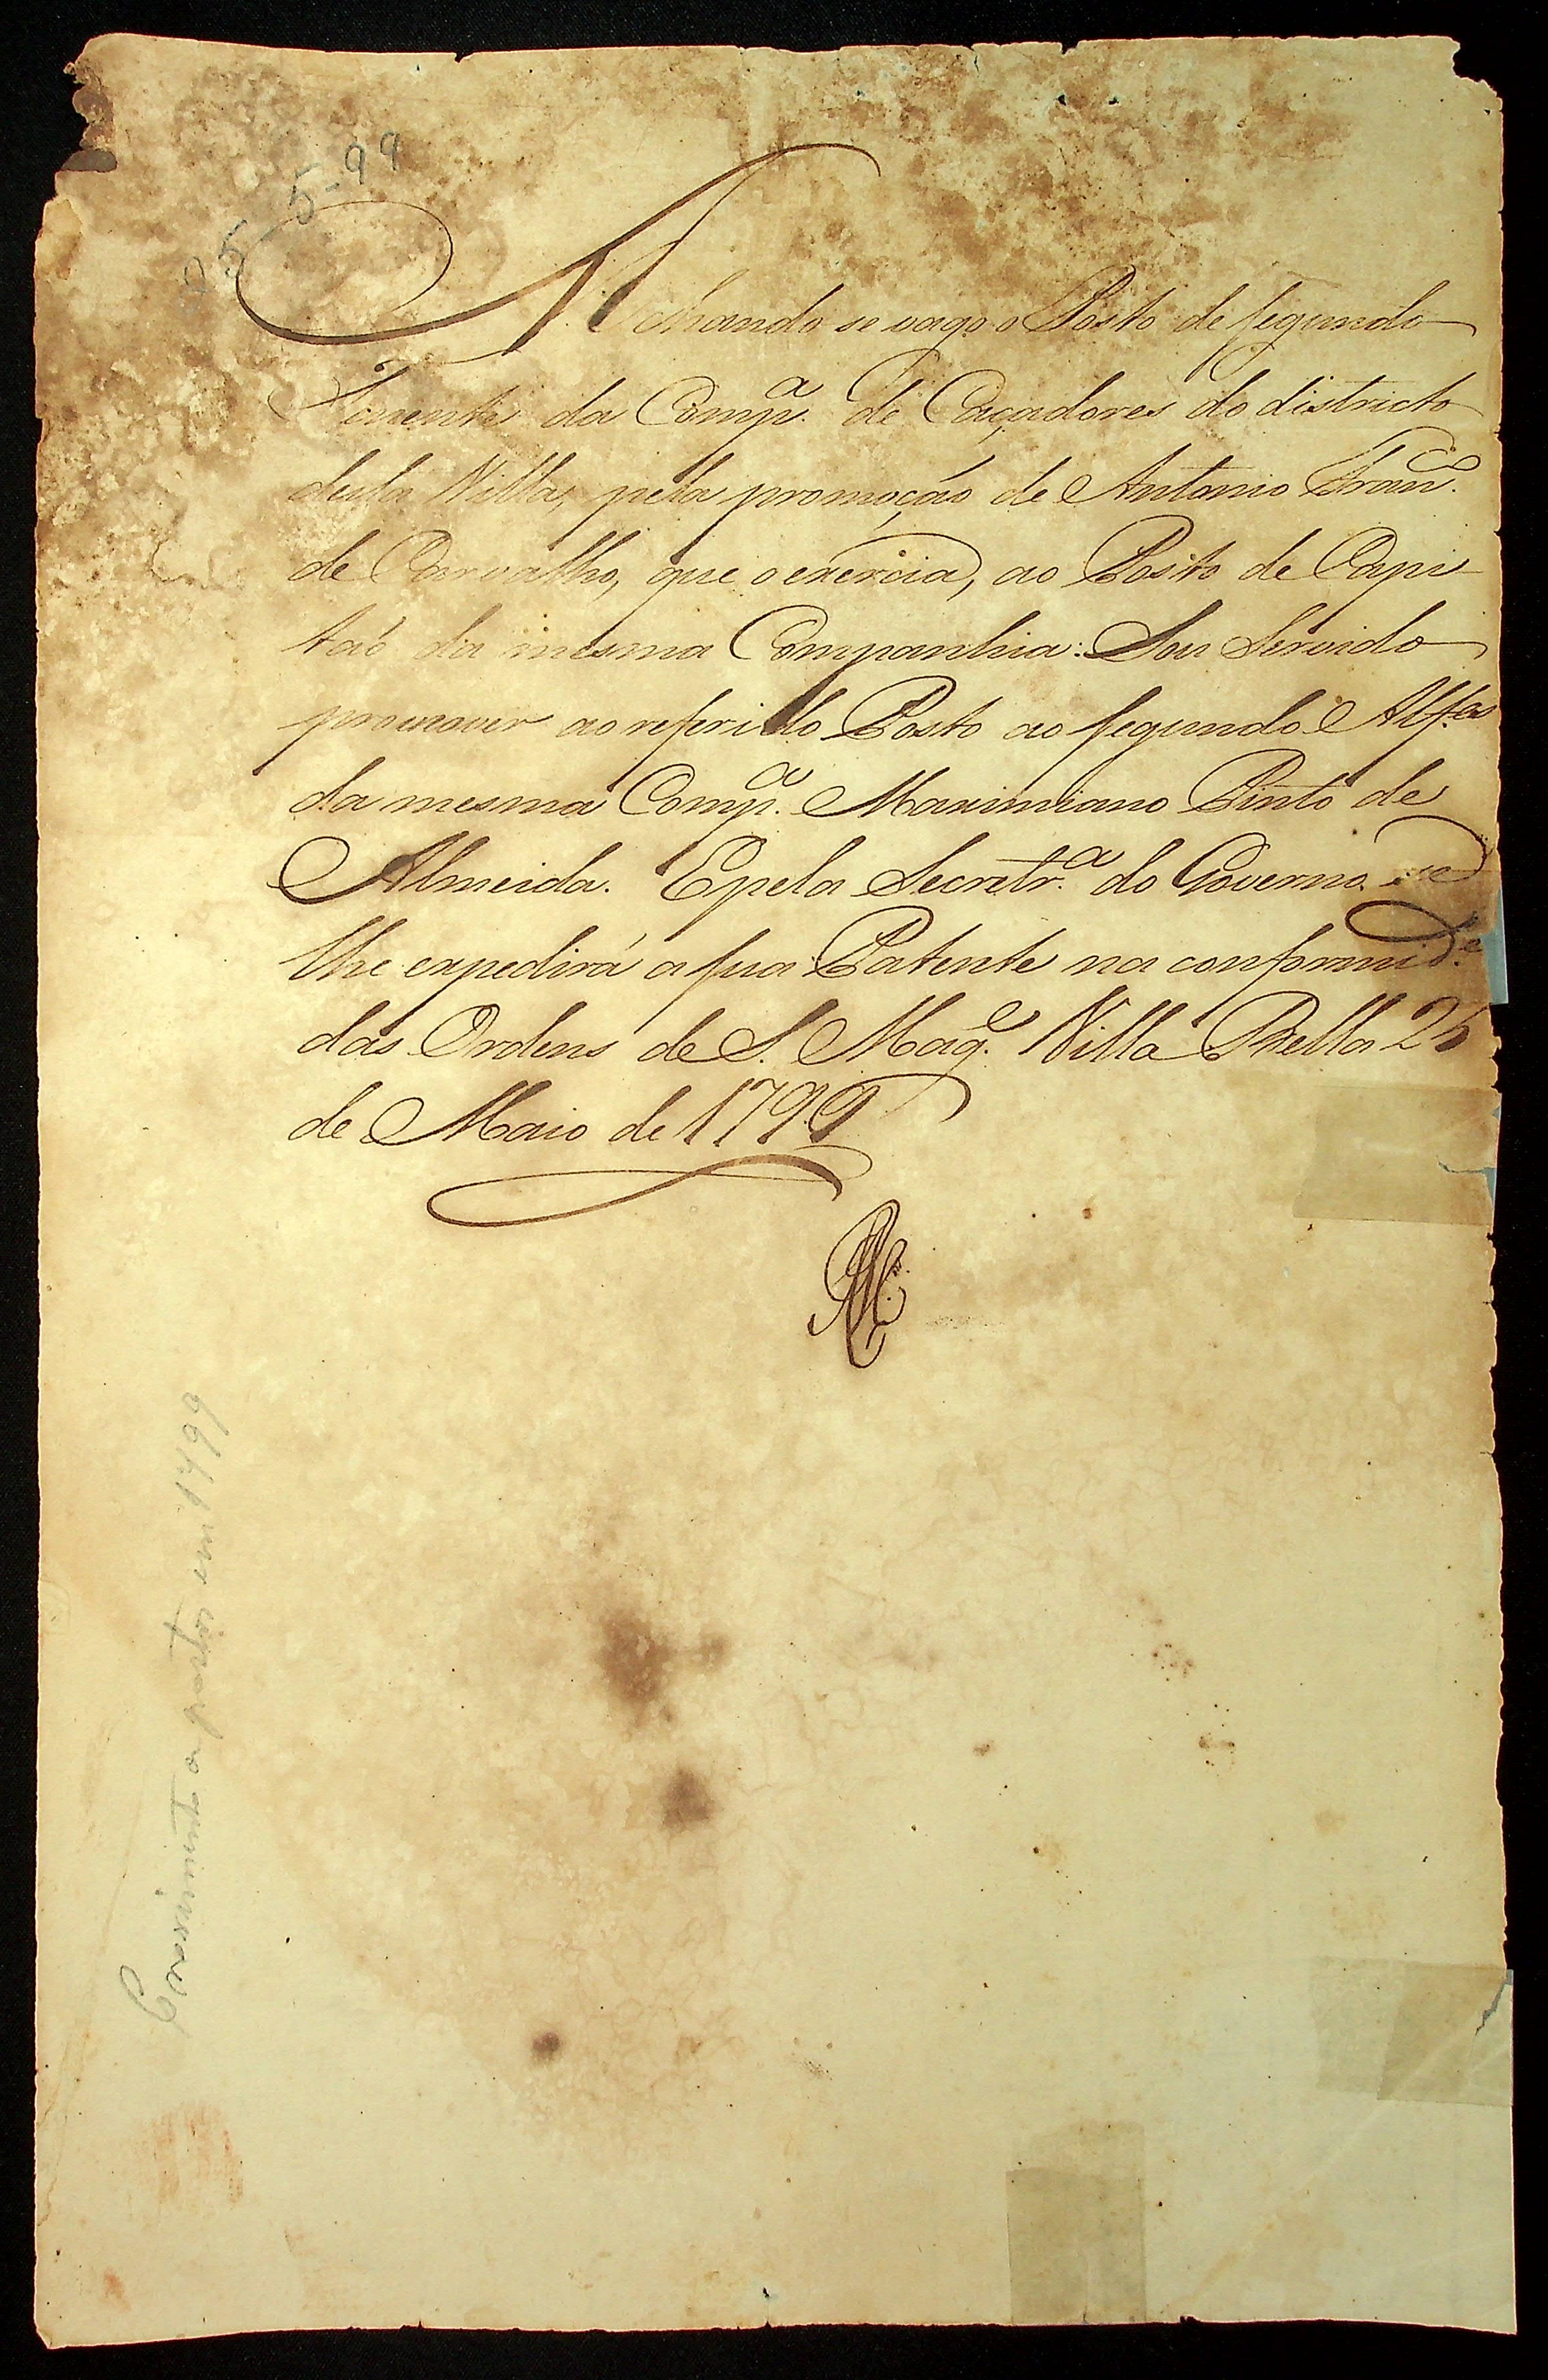 25-5-99
Achando se vago o Posto de segundo
Tenente da Comp.ª de Caçadores do districto
desta Villa, pela promoção de Antonio Fran.co
de Carvalho, que o exercia, ao Posto de Capi
taõ da mesma Companhia: Sou Servido
promover ao referido Posto ao segundo Alf.es
da mesma Comp.ª Maximiano Pinto de
Almeida. E pela Secretr.ª do Governo se
lhe expedirá a sua Patente na conformid.e
das Ordens de S. Mag.e Villa Bella 25
de Maio de 1799
a postos em 1799